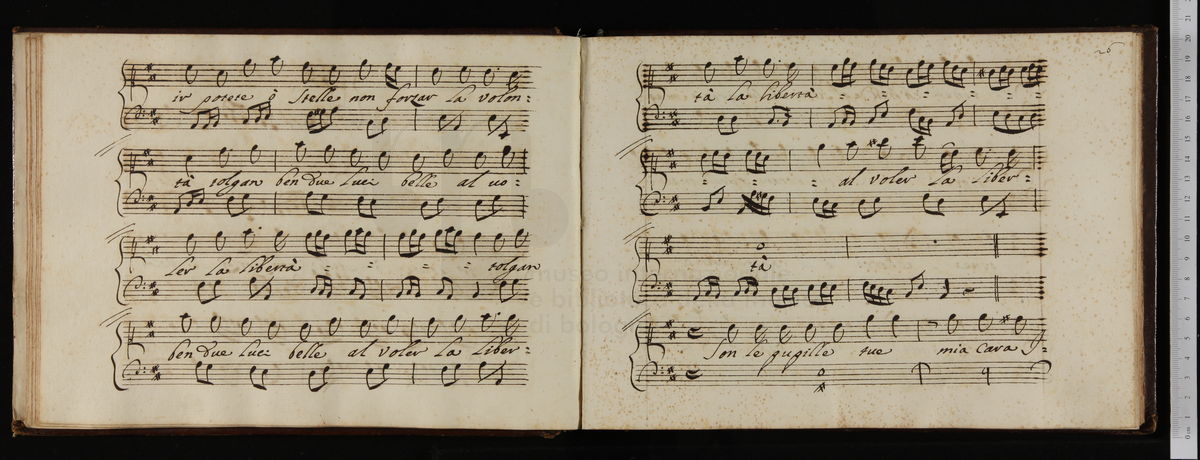 ir potete ò Stelle non forzar la volon=
tà tolgan ben due luci belle al vo=
ler la libertà = = = = tolgan
ben due luci belle al voler la liber=
26
tà la libertà = = = =
= = = al voler la liber=
tà
Son le pupille tue mia cara
museo in
e biblio
di bolo